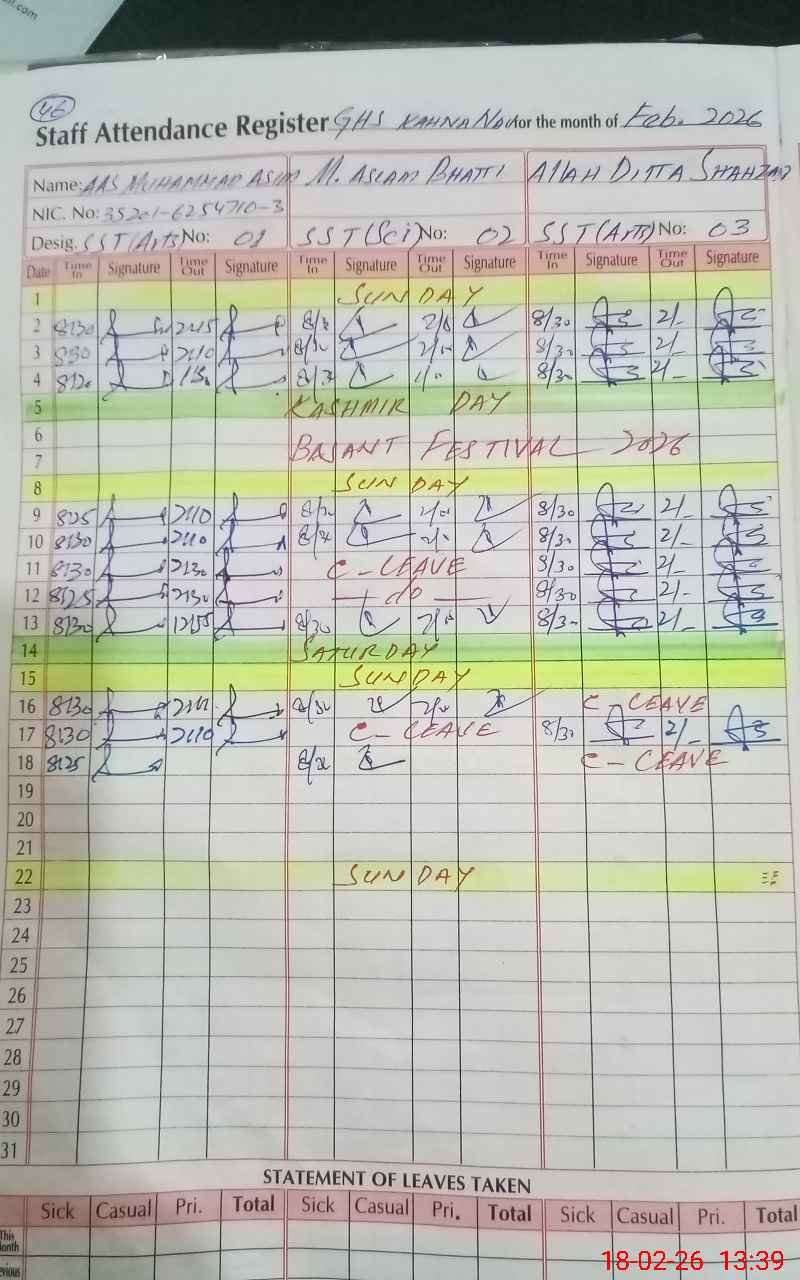 46
Staff Attendance Register GHS KAHNA NOU for the month of Feb. 2026
Name: AAS MUHAMMAD ASIM M. ASLAM BHATTI ALLAH DITTA SHAHZAD
NIC. No: 35201-6254710-3
Desig. SST(Arts) No: 01 SST(Sci) No: 02 SST(Arts) No: 03
Date Time In Signature Time Out Signature Time In Signature Time Out Signature Time In Signature Time Out Signature
1 SUNDAY
2 8:30 2:15 8/30 2/- 8/30 2/-
3 8:30 2:10 8/30 8/30 2/-
4 8/30 8/30 2/-
5 KASHMIR DAY
6
BASANT FESTIVAL 2026
7
8 SUNDAY
9 8:25 2:10 8/30 2/-
10 8:30 2:10 8/30 2/-
11 8:30 2:30 C-LEAVE 8/30 2/-
12 8:25 2:30 do 8/30 2/-
13 8:30 12:55 8/30 8/30 2/-
14 SATURDAY
15 SUNDAY
16 8:30 8/30 C-LEAVE
17 8:30 2:10 C-LEAVE 8/30 2/-
18 8:25 C-LEAVE
19
20
21
22 SUNDAY
23
24
25
26
27
28
29
30
31
STATEMENT OF LEAVES TAKEN
Sick Casual Pri. Total Sick Casual Pri. Total Sick Casual Pri. Total
This Month
18-02-26 13:39